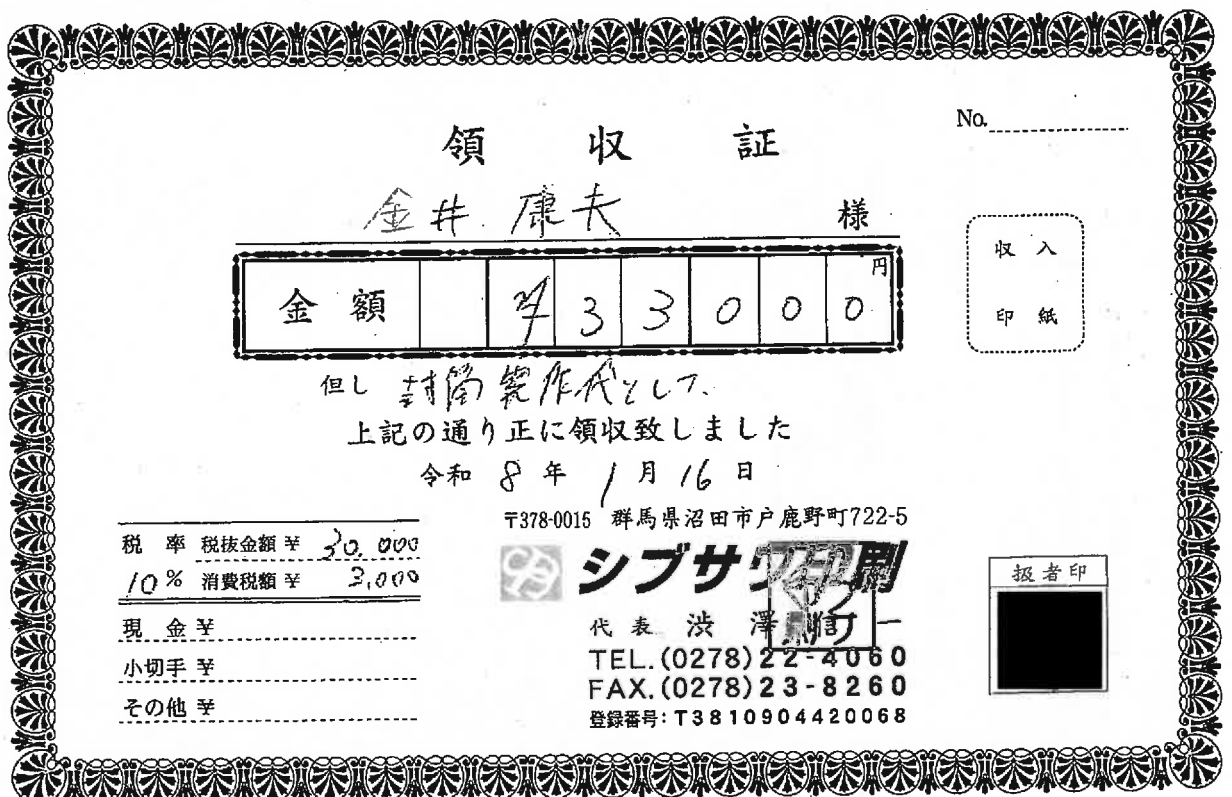 No.
領収証
金井 康夫 様
収入
印紙
金額 ¥33000円
但し 封筒製作代として、
上記の通り正に領収致しました
令和 8年 1月 16日
〒378-0015 群馬県沼田市戸鹿野町722-5
シブサワ印刷
代表 渋澤 信一
TEL.(0278)22-4060
FAX.(0278)23-8260
登録番号:T3810904420068
税率 税抜金額¥ 30,000
10% 消費税額¥ 3,000
現金¥
小切手¥
その他¥
扱者印